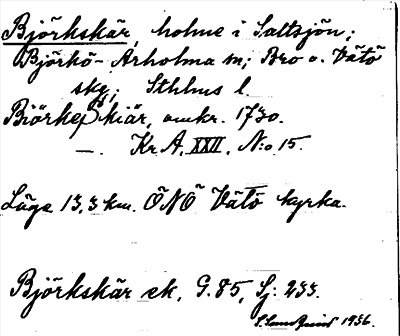 Björkskär, holme i Saltsjön;
Björkö-Arholma sn; Bro o. Vätö
skg; Sthlms l.
Biörkeskiär, omkr. 1730.
—. Kr A. XXII. N:o 15.
Läge 13,3 km. ÖNÖ Vätö kyrka.
Björkskär ek. G. 85, Sj: 233.
1936.